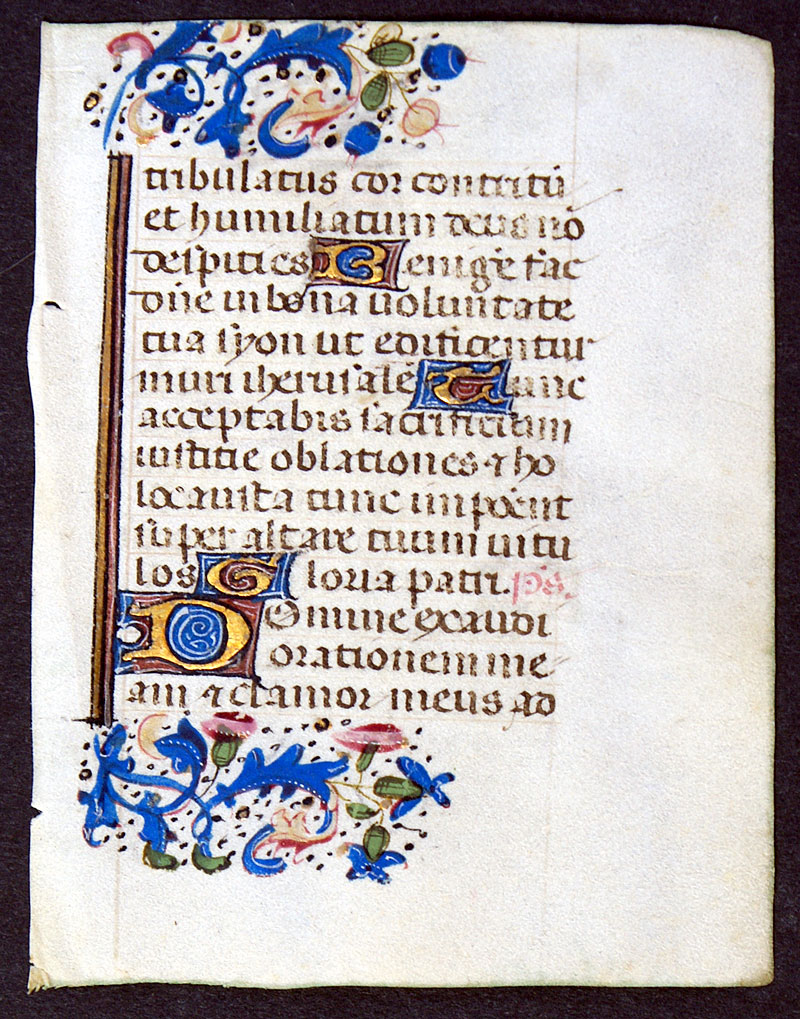 tribulatus cor contritū
et humiliatum deus nō
despities Benigē fac
dn̄e in bona uoluntate
tua syon ut edificentur
muri iherusalē Tunc
acceptabis sacrificium
iustitie oblationes ⁊ ho
locausta tunc imponēt
super altare tuum uitu
los Gloria patri. ps.
Domine exaudi
orationem me
am ⁊ clamor meus ad